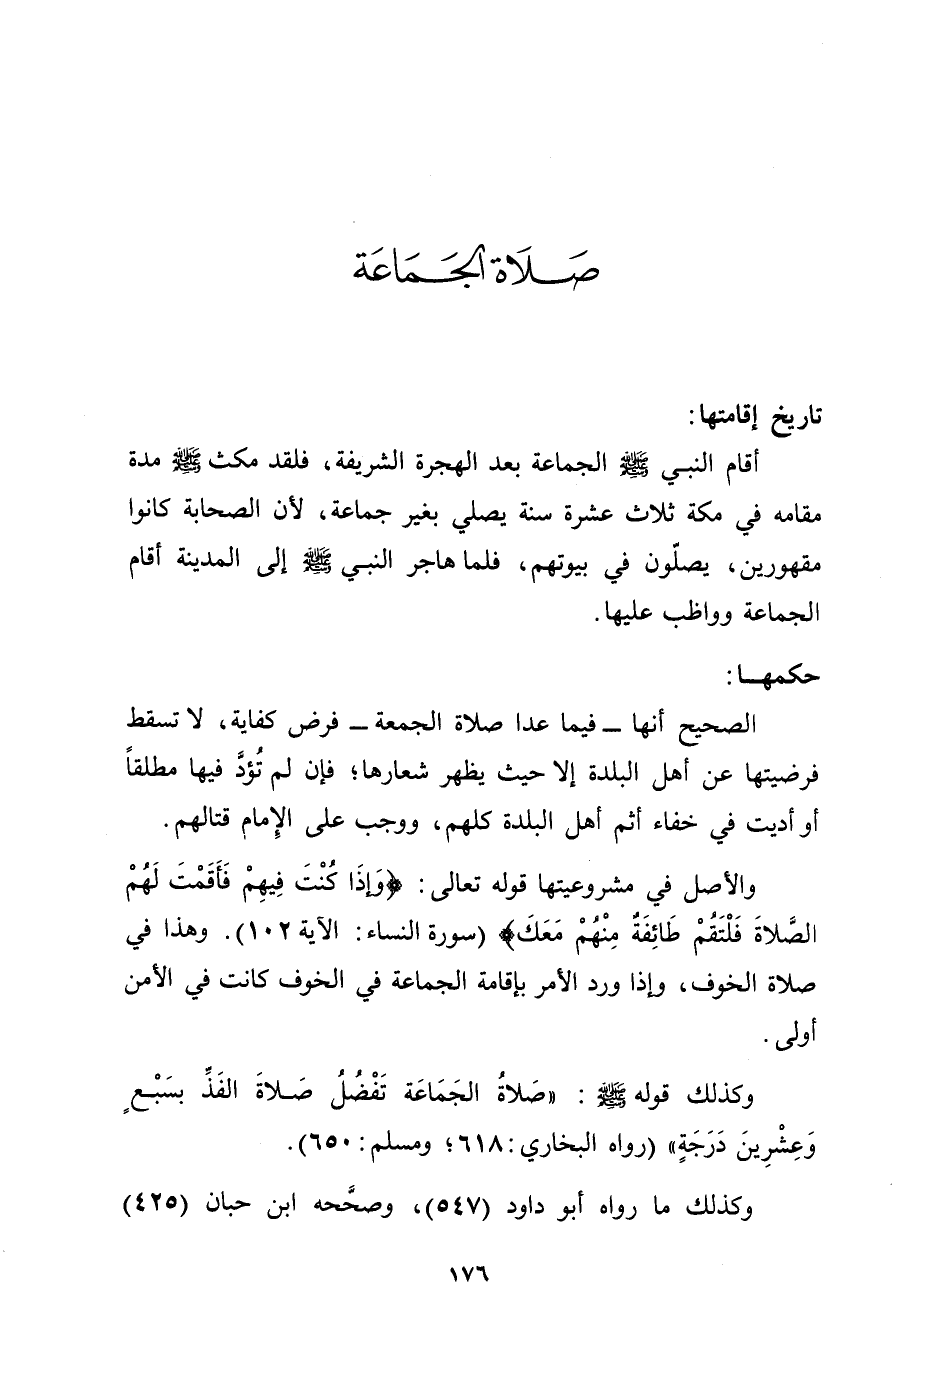 صَلَاة الجَمَاعَة
تاريخ إقامتها:
أقام النبي ﷺ الجماعة بعد الهجرة الشريفة، فلقد مكث ﷺ مدة
مقامه في مكة ثلاث عشرة سنة يصلي بغير جماعة، لأن الصحابة كانوا
مقهورين، يصلّون في بيوتهم، فلما هاجر النبي ﷺ إلى المدينة أقام
الجماعة وواظب عليها.
حكمها:
الصحيح أنها ــ فيما عدا صلاة الجمعة ــ فرض كفاية، لا تسقط
فرضيتها عن أهل البلدة إلا حيث يظهر شعارها؛ فإن لم تُؤدَّ فيها مطلقاً
أو أديت في خفاء أثم أهل البلدة كلهم، ووجب على الإمام قتالهم.
والأصل في مشروعيتها قوله تعالى: ﴿وَإذَا كُنْتَ فِيهِمْ فَأَقَمْتَ لَهُمْ
الصَّلاةَ فَلْتَقُمْ طَائِفَةٌ مِنْهُمْ مَعَكَ﴾ (سورة النساء: الآية ١٠٢). وهذا في
صلاة الخوف، وإذا ورد الأمر بإقامة الجماعة في الخوف كانت في الأمن
أولى.
وكذلك قوله ﷺ: «صَلاةُ الجَمَاعَة تَفْضُلُ صَلاةَ الفَذِّ بسَبْعٍ
وَعِشْرِينَ دَرَجَةٍ» (رواه البخاري: ٦١٨؛ ومسلم: ٦٥٠).
وكذلك ما رواه أبو داود (٥٤٧)، وصحَّحه ابن حبان (٤٢٥)
١٧٦